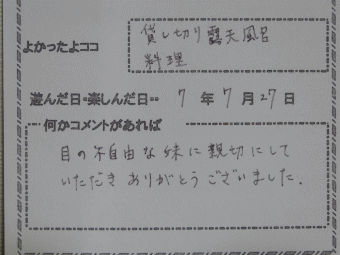 よかったよココ
貸し切り露天風呂
料理
遊んだ日・楽しんだ日・・ 7 年 7 月 27 日
何かコメントがあれば
目の不自由な妹に親切にして
いただきありがとうございました。